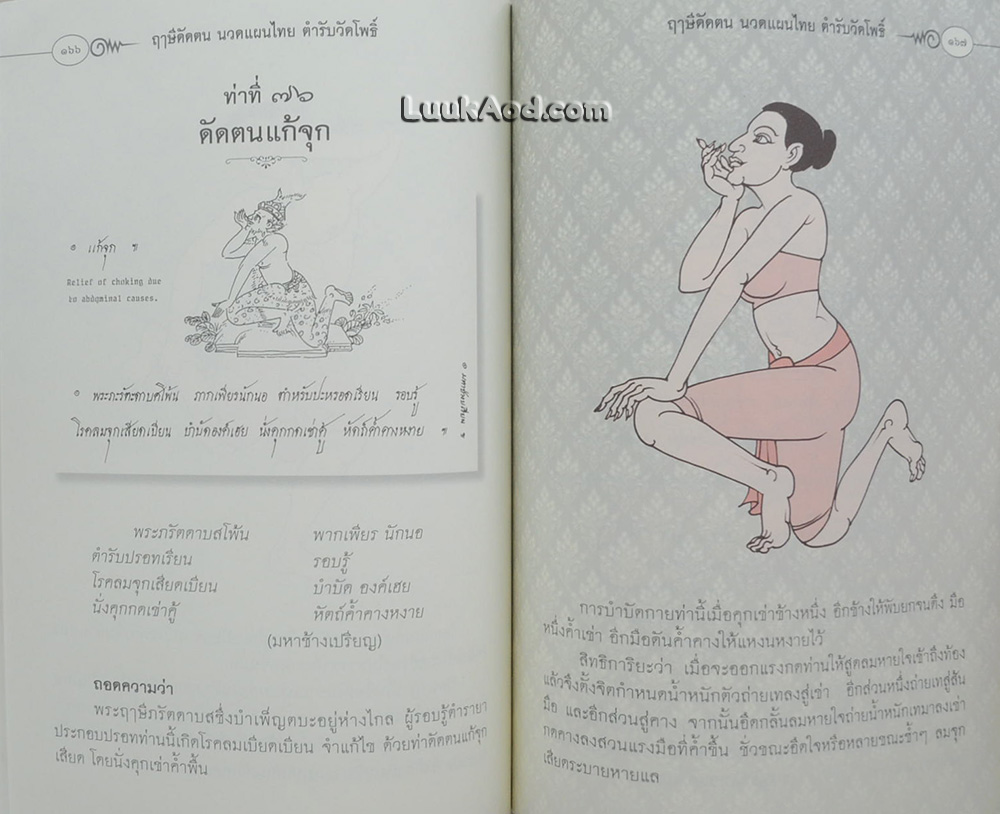 ๑๖๖
ฤๅษีดัดตน นวดแผนไทย ตำรับวัดโพธิ์
ท่าที่ ๗๖
ดัดตนแก้จุก
๏ แก้จุก ฯ
Relief of choking due
to abdominal causes.
๏ พระภะรัตะดาบศโพ้น ภากเพียรนักนอ ตำหรับปะหรอดเรียน รอบรู้
โรคลมจุกเสียดเบียน บำบัดองค์เฮย นั่งคุกกดเข่าคู้ หัตถ์ค้ำคางหงาย ฯ
พระภรัตดาบสโพ้น พากเพียร นักนอ
ตำรับปรอทเรียน รอบรู้
โรคลมจุกเสียดเบียน บำบัด องค์เฮย
นั่งคุกกดเข่าคู้ หัตถ์ค้ำคางหงาย
(มหาช้างเปรียญ)
ถอดความว่า
พระฤๅษีภรัตดาบสซึ่งบำเพ็ญตบะอยู่ห่างไกล ผู้รอบรู้ตำรายา
ประกอบปรอทท่านนี้เกิดโรคลมเบียดเบียน จำแก้ไข ด้วยท่าดัดตนแก้จุก
เสียด โดยนั่งคุกเข่าค้ำพื้น
ฤๅษีดัดตน นวดแผนไทย ตำรับวัดโพธิ์
๑๖๗
การบำบัดกายท่านี้เมื่อคุกเข่าข้างหนึ่ง อีกข้างให้พับยกจนตึง มือ
หนึ่งค้ำเข่า อีกมือดันค้ำคางให้แหงนหงายไว้
สิทธิการิยะว่า เมื่อจะออกแรงกดท่านให้สูดลมหายใจเข้าถึงท้อง
แล้วจึงตั้งจิตกำหนดน้ำหนักตัวถ่ายเทลงสู่เข่า อีกส่วนหนึ่งถ่ายเทสู่สัน
มือ และอีกส่วนสู่คาง จากนั้นอึดกลั้นลมหายใจถ่ายน้ำหนักเทมาลงเข่า
กดคางลงสวนแรงมือที่ค้ำขึ้น ชั่วขณะอึดใจหรือหลายขณะซ้ำๆ ลมจุก
เสียดระบายหายแล
LuukAod.com